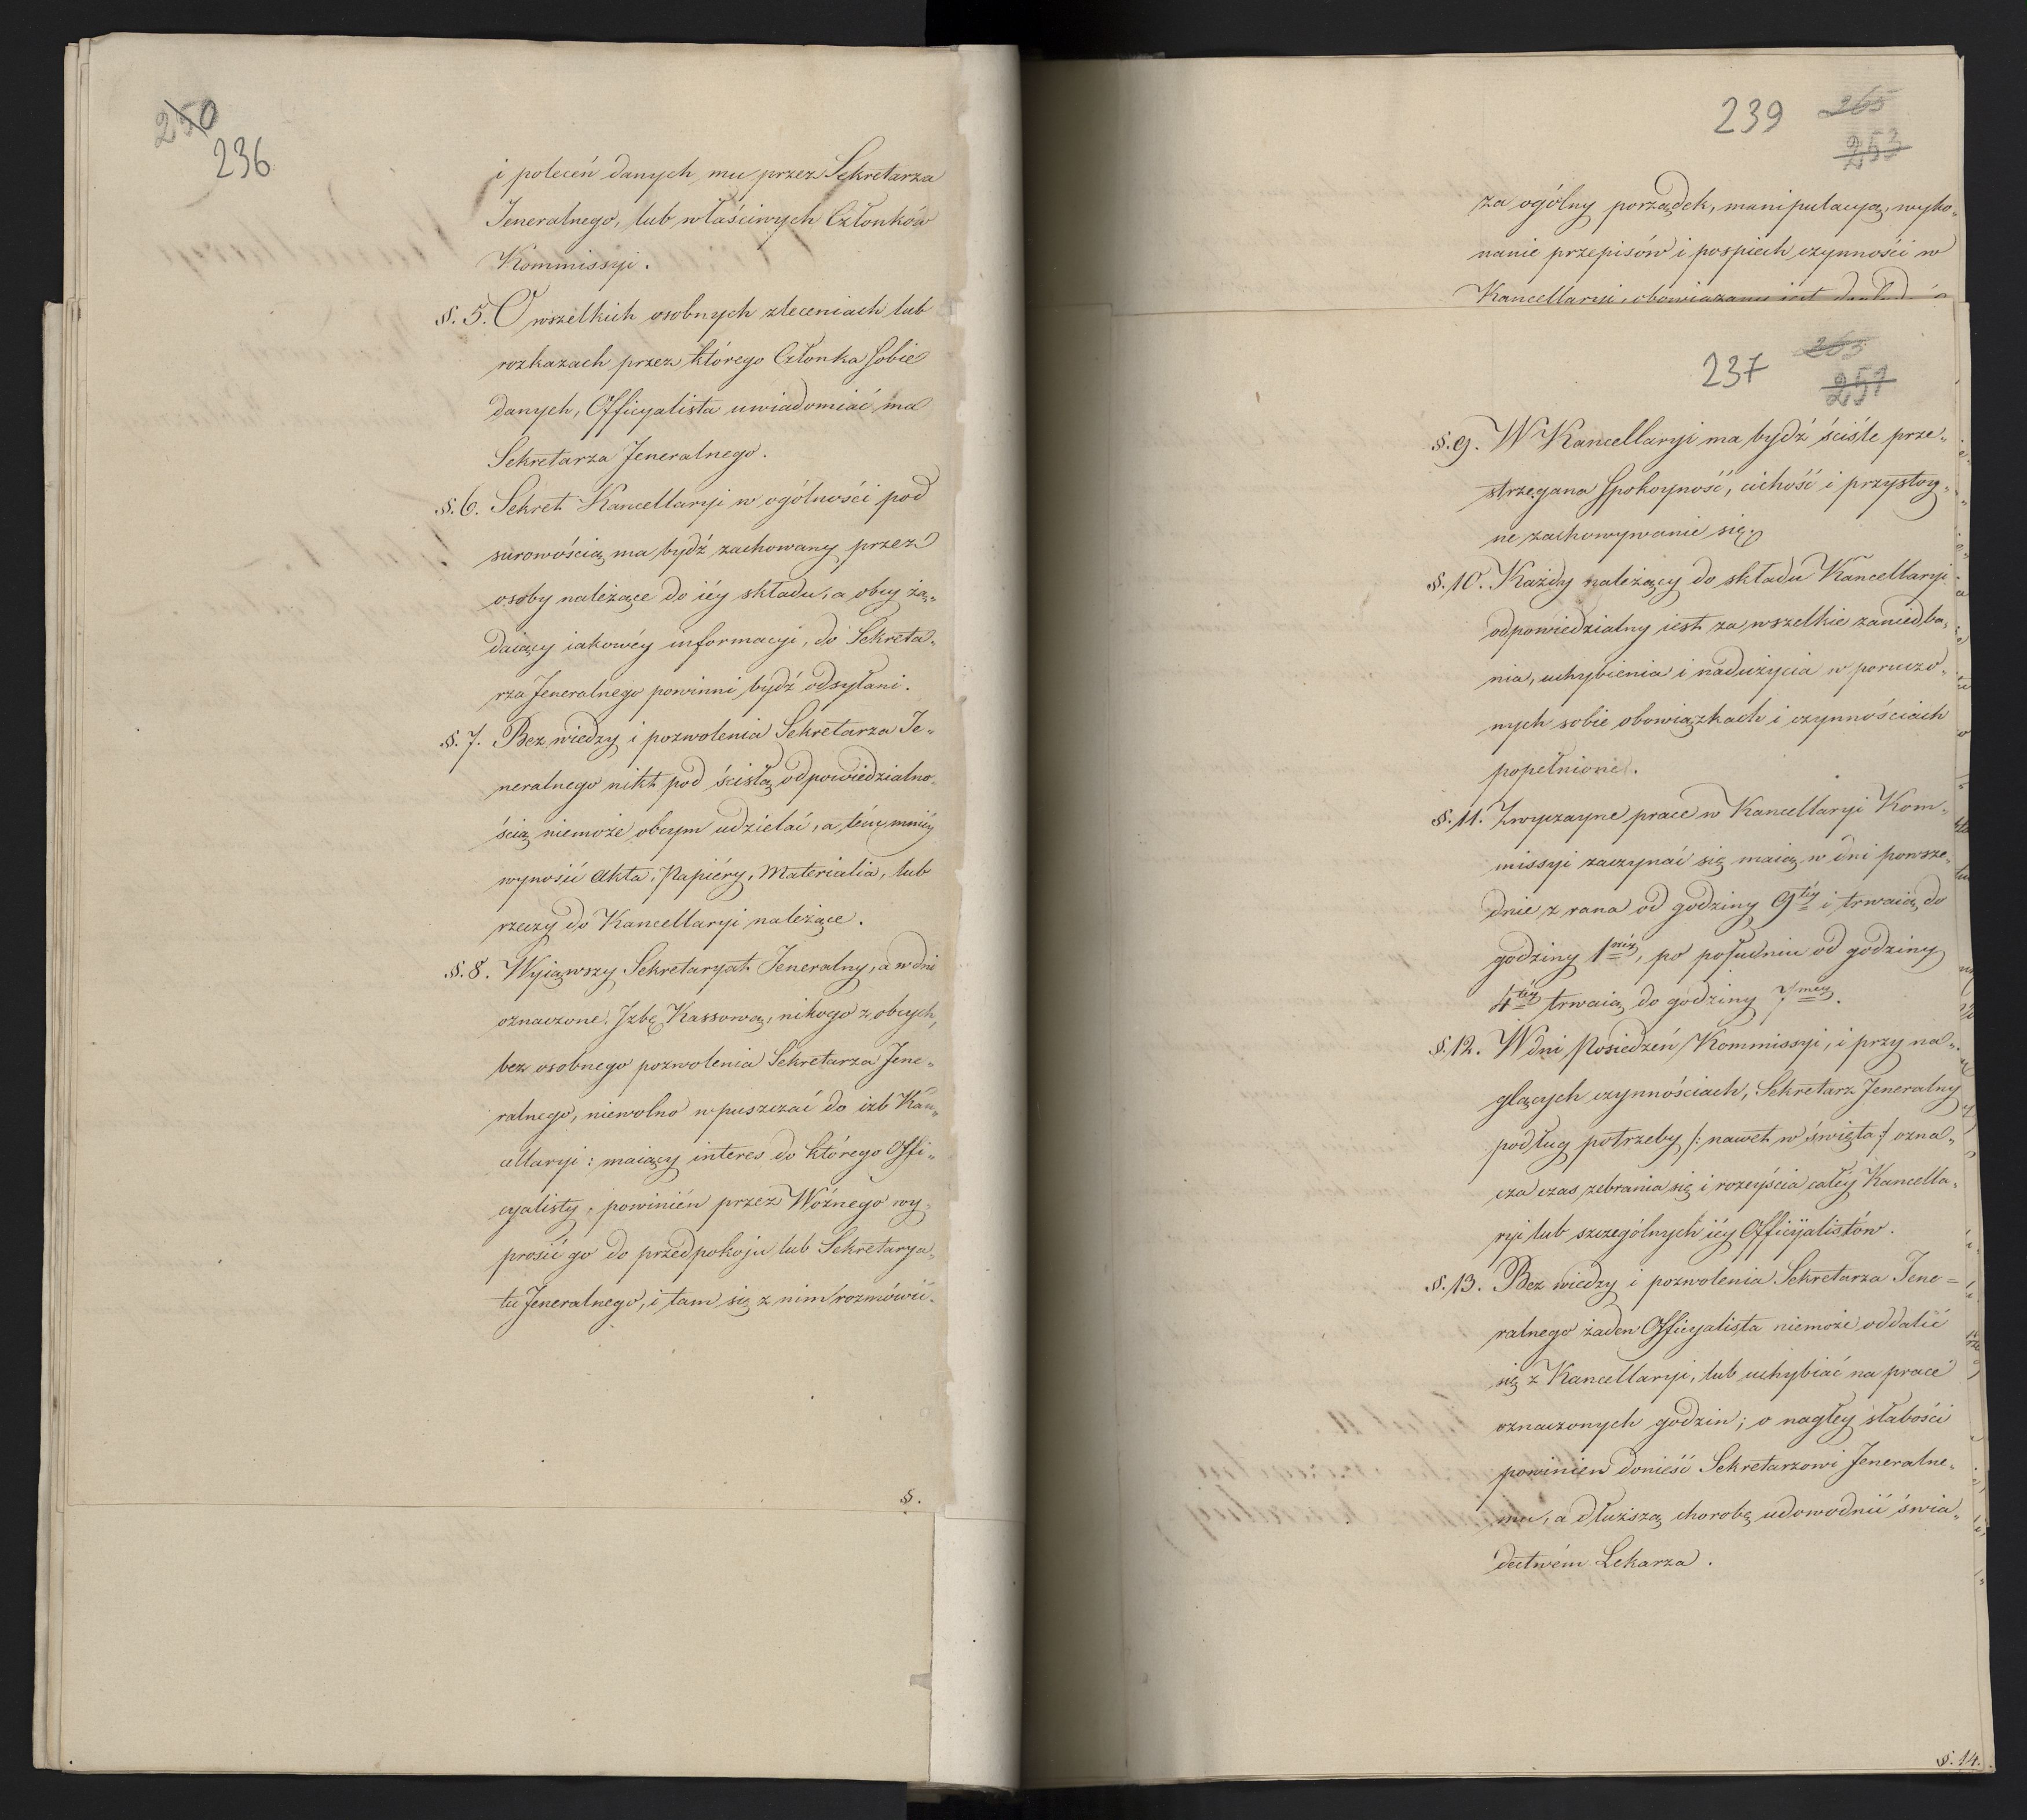 250
236
i poleceń danych mu przez Sekretarza
Jeneralnego, lub właściwych Członków
Kommissyi.
§. 5. O wszelkich osobnych zleceniach lub
rozkazach przez którego Członka sobie
danych, Officyalista uwiadomiać ma
Sekretarza Jeneralnego.
§. 6. Sekret Kancellaryi w ogólności pod
surowością ma bydź zachowany przez
osoby należące do iéy składu, a obcy żą„
daiący iakowéy informacyi, do Sekreta„
rza Jeneralnego powinni bydź odsyłani.
§. 7. Bez wiedzy i pozwolenia Sekretarza Je„
neralnego nikt pod ścisłą odpowiedzialno„
ścią niemoże obcym udzielać, a tém mniéy
wynosić Akta, Papiéry, Materialia, lub
rzeczy do Kancellaryi należące.
§. 8. Wyiąwszy Sekretaryat Jeneralny, a w dni
oznaczone Jzbę Kassową, nikogo z obcych,
bez osobnego pozwolenia Sekretarza Jene„
ralnego, niewolno wpuszczać do izb Kan„
cellaryi: maiący interes do którego Offi„
cyalisty, powinién przez Woźnego wy„
prosić go do przedpokoju lub Sekretarya„
tu Jeneralnego, i tam się z nim rozmówić.
§.
239 265
253
za ogólny porządek, manipulacyą, wyko„
nanie przepisów i pospiech czynności w
Kancellaryi, obowiązany iest
237 263
251
§. 9. W Kancellaryi ma bydź ściśle prze„
strzegana spokoyność, cichość i przystoy„
ne zachowywanie się.
§. 10. Każdy należący do składu Kancellaryi
odpowiedzialny iest za wszelkie zaniedba„
nia, uchybienia i nadużycia w poruczo„
nych sobie obowiązkach i czynnościach
popełnione.
§. 11. Zwyczayne prace w Kancellaryi Kom„
missyi zaczynać się maią w dni powsze„
dnie z rana od godziny 9téy i trwaią do
godziny 1széy, po południu od godziny
4téy trwaią do godziny 7méy.
§. 12. W dni Posiedzeń Kommissyi, i przy na„
glących czynnościach, Sekretarz Jeneralny
podług potrzeby /: nawet w święta :/ ozna„
cza czas zebrania się i rozeyścia całéy Kancella„
ryi lub szczególnych iéy Officyalistów.
§. 13. Bez wiedzy i pozwolenia Sekretarza Jene=
ralnego żaden Officyalista niemoże oddalić
się z Kancellaryi, lub uchybiać na prace
oznaczonych godzin; o nagłéy słabości
powinien donieść Sekretarzowi Jeneralne„
mu, a dłuższą chorobę udowodnić świa„
dectwém Lekarza.
§. 14.